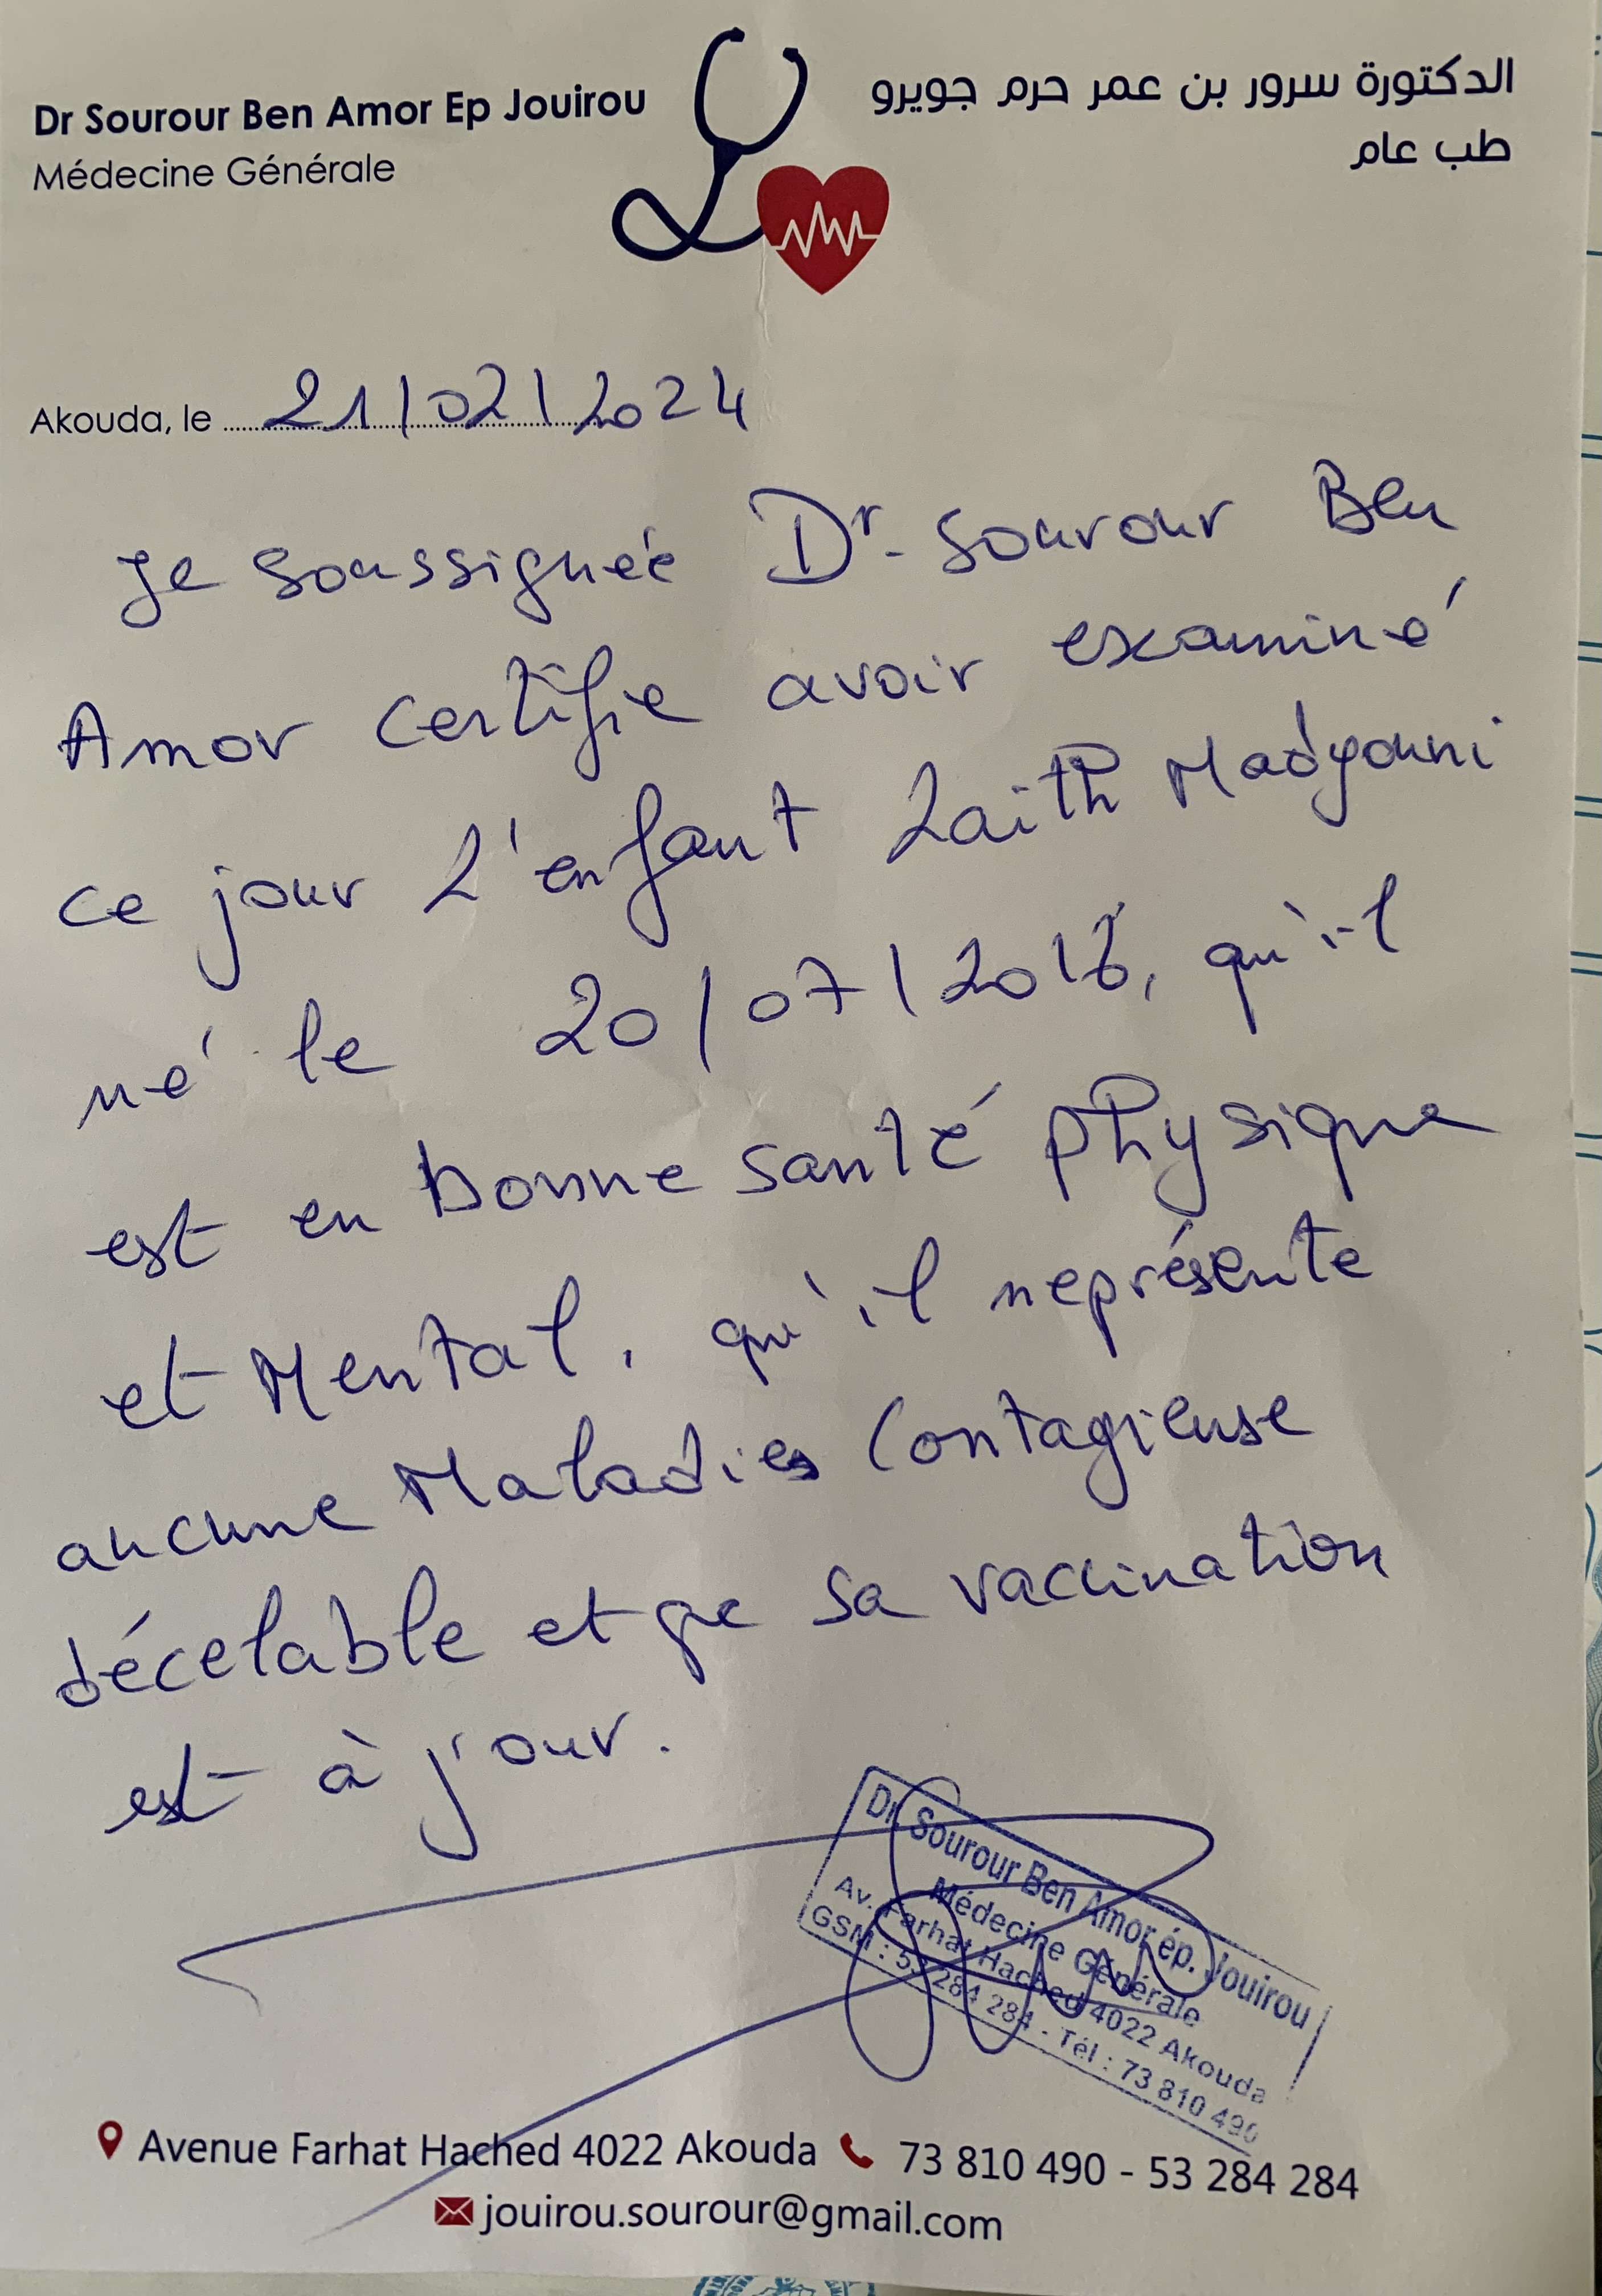 Dr Sourour Ben Amor Ep Jouirou
Médecine Générale
الدكتورة سرور بن عمر حرم جويرو
طب عام
Akouda, le 21/02/2024
Je soussignée Dr. Sourour Ben
Amor certifie avoir examiné
ce jour L'enfant Laith Madyouni
né le 20/07/2018, qu'il
est en bonne santé physique
et Mental, qu'il neprésente
aucune Maladies Contagieuse
décelable et que sa vaccination
est à jour.
Dr. Sourour Ben Amor ép. Jouirou
Médecine Générale
Av. Farhat Hached 4022 Akouda
GSM : 53 284 284 - Tél : 73 810 490
Avenue Farhat Hached 4022 Akouda 73 810 490 - 53 284 284
jouirou.sourour@gmail.com